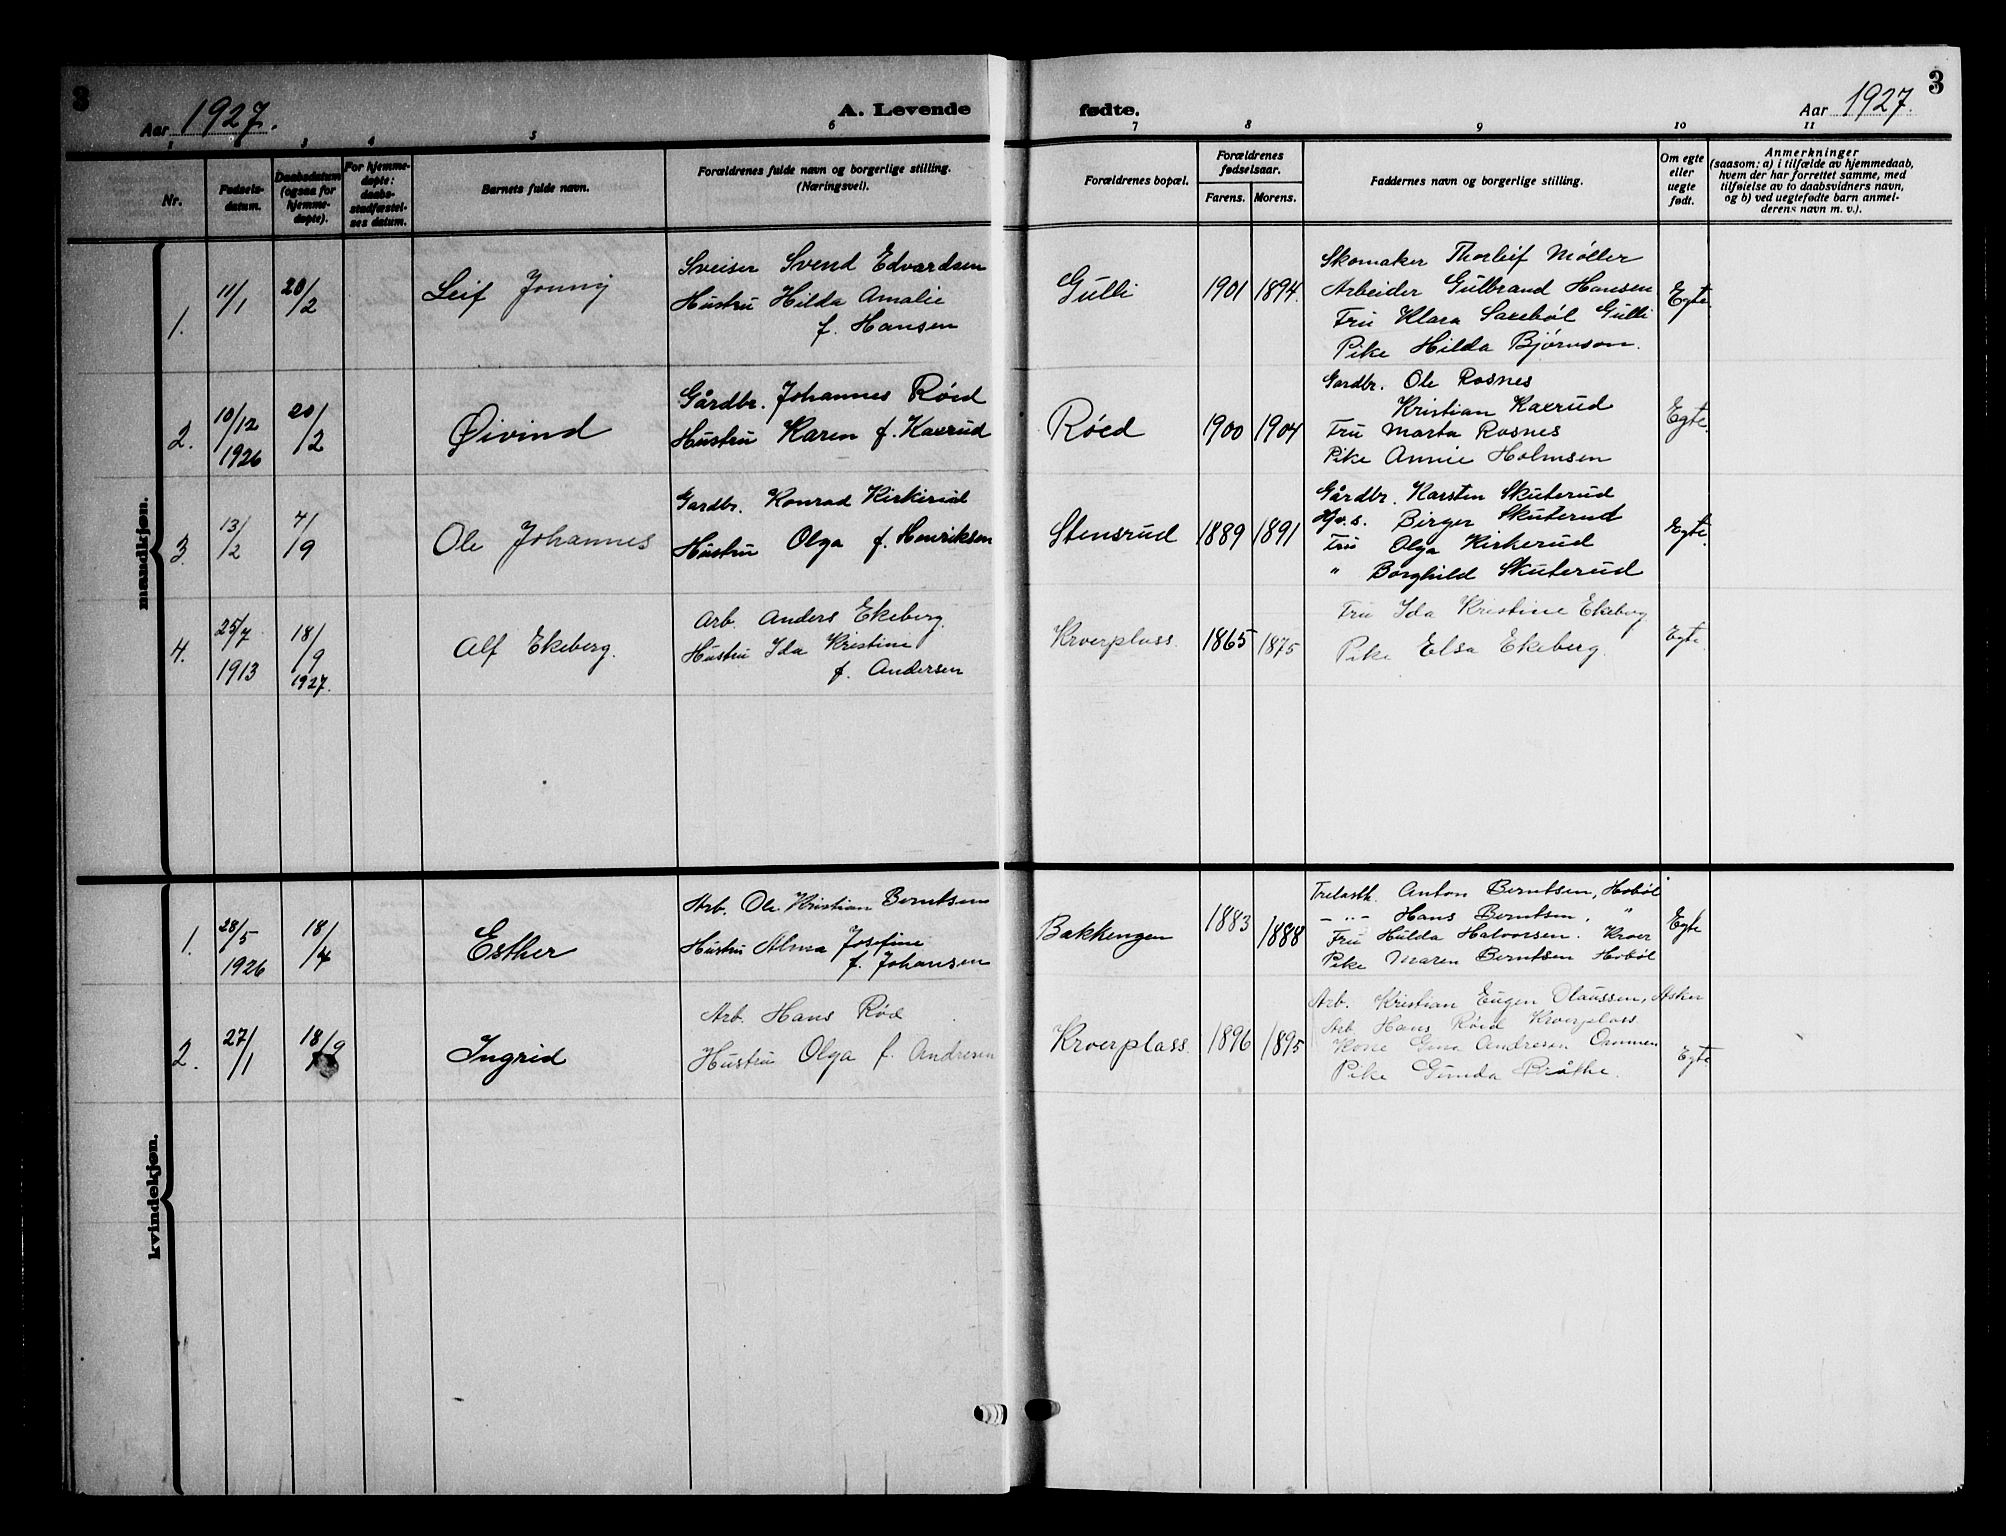 3
Aar 1927.
A. Levende fødte.
Aar 1927.
3
1 2 3 4 5 6 7 8 9 10 11
Nr.
Fødsels-
datum.
Daabsdatum
(ogsaa for
hjemme-
døpte).
For hjemme-
døpte:
daabs-
stadfæstel-
ses datum.
Barnets fulde navn.
Forældrenes fulde navn og borgerlige stilling.
(Næringsvei).
Forældrenes bopæl.
Forældrenes
fødselsaar.
Farens. Morens.
Faddernes navn og borgerlige stilling.
Om egte
eller
uegte
født.
Anmerkninger
(saasom: a) i tilfælde av hjemmedaab,
hvem der har forrettet samme, med
tilføielse av to daabsvidners navn,
og b) ved uegtefødte barn anmel-
derens navn m. v.).
mandkjøn.
1.
11/1
20/2
Leif Jonny
Sveiser Svend Edvardsen
Hustru Hilda Amalie
f. Hansen
Gulli
1901 1894.
Skomaker Thorleif Møller
Arbeider Gulbrand Hansen
Fru Klara Saxebøl Gulli
Pike Hilda Bjørnson.
Egte.
2.
10/12
1926
20/2
Øivind
Gårdbr. Johannes Røed
Hustru Karen f. Kaxrud
Røed
1900 1904
Gardbr. Ole Rosnes
Kristian Kaxrud
Fru Marta Rosnes
Pike Annie Holmsen
Egte.
3.
13/2
4/9
Ole Johannes
Gardbr. Konrad Kirkerud
Hustru Olga f. Henriksen
Stensrud
1889 1891
Gårdbr. Karsten Skuterud
Gv. s. Birger Skuterud
Fru Olga Kirkerud
" Borghild Skuterud
Egte.
4.
25/7
1913
18/9
1927.
Alf Ekeberg.
Arb. Anders Ekeberg.
Hustru Ida Kristine
f. Andersen
Kroerplass
1865 1875
Fru Ida Kristine Ekeberg
Pike Elsa Ekeberg.
Egte.
kvindekjøn.
1.
28/5
1926
18/4
Esther
Arb. Ole Kristian Berntsen
Hustru Alma Josefine
f. Johansen
Bakkengen
1883 1888
Trelasth. Anton Berntsen, Hobøl
- " - Hans Berntsen, "
Fru Hulda Halvorsen. Kroer
Pike Maren Berntsen Hobøl
Egte
2.
27/1
18/9
Ingrid
Arb. Hans Røe
Hustru Olga f. Andresen
Kroerplass.
1896 1895
Arb. Kristian Eugen Olaussen, Asker
Arb Hans Røed Kroerplass
Kone Gina Andresen Ommen
Pike Gunda Bråthe.
Egte.